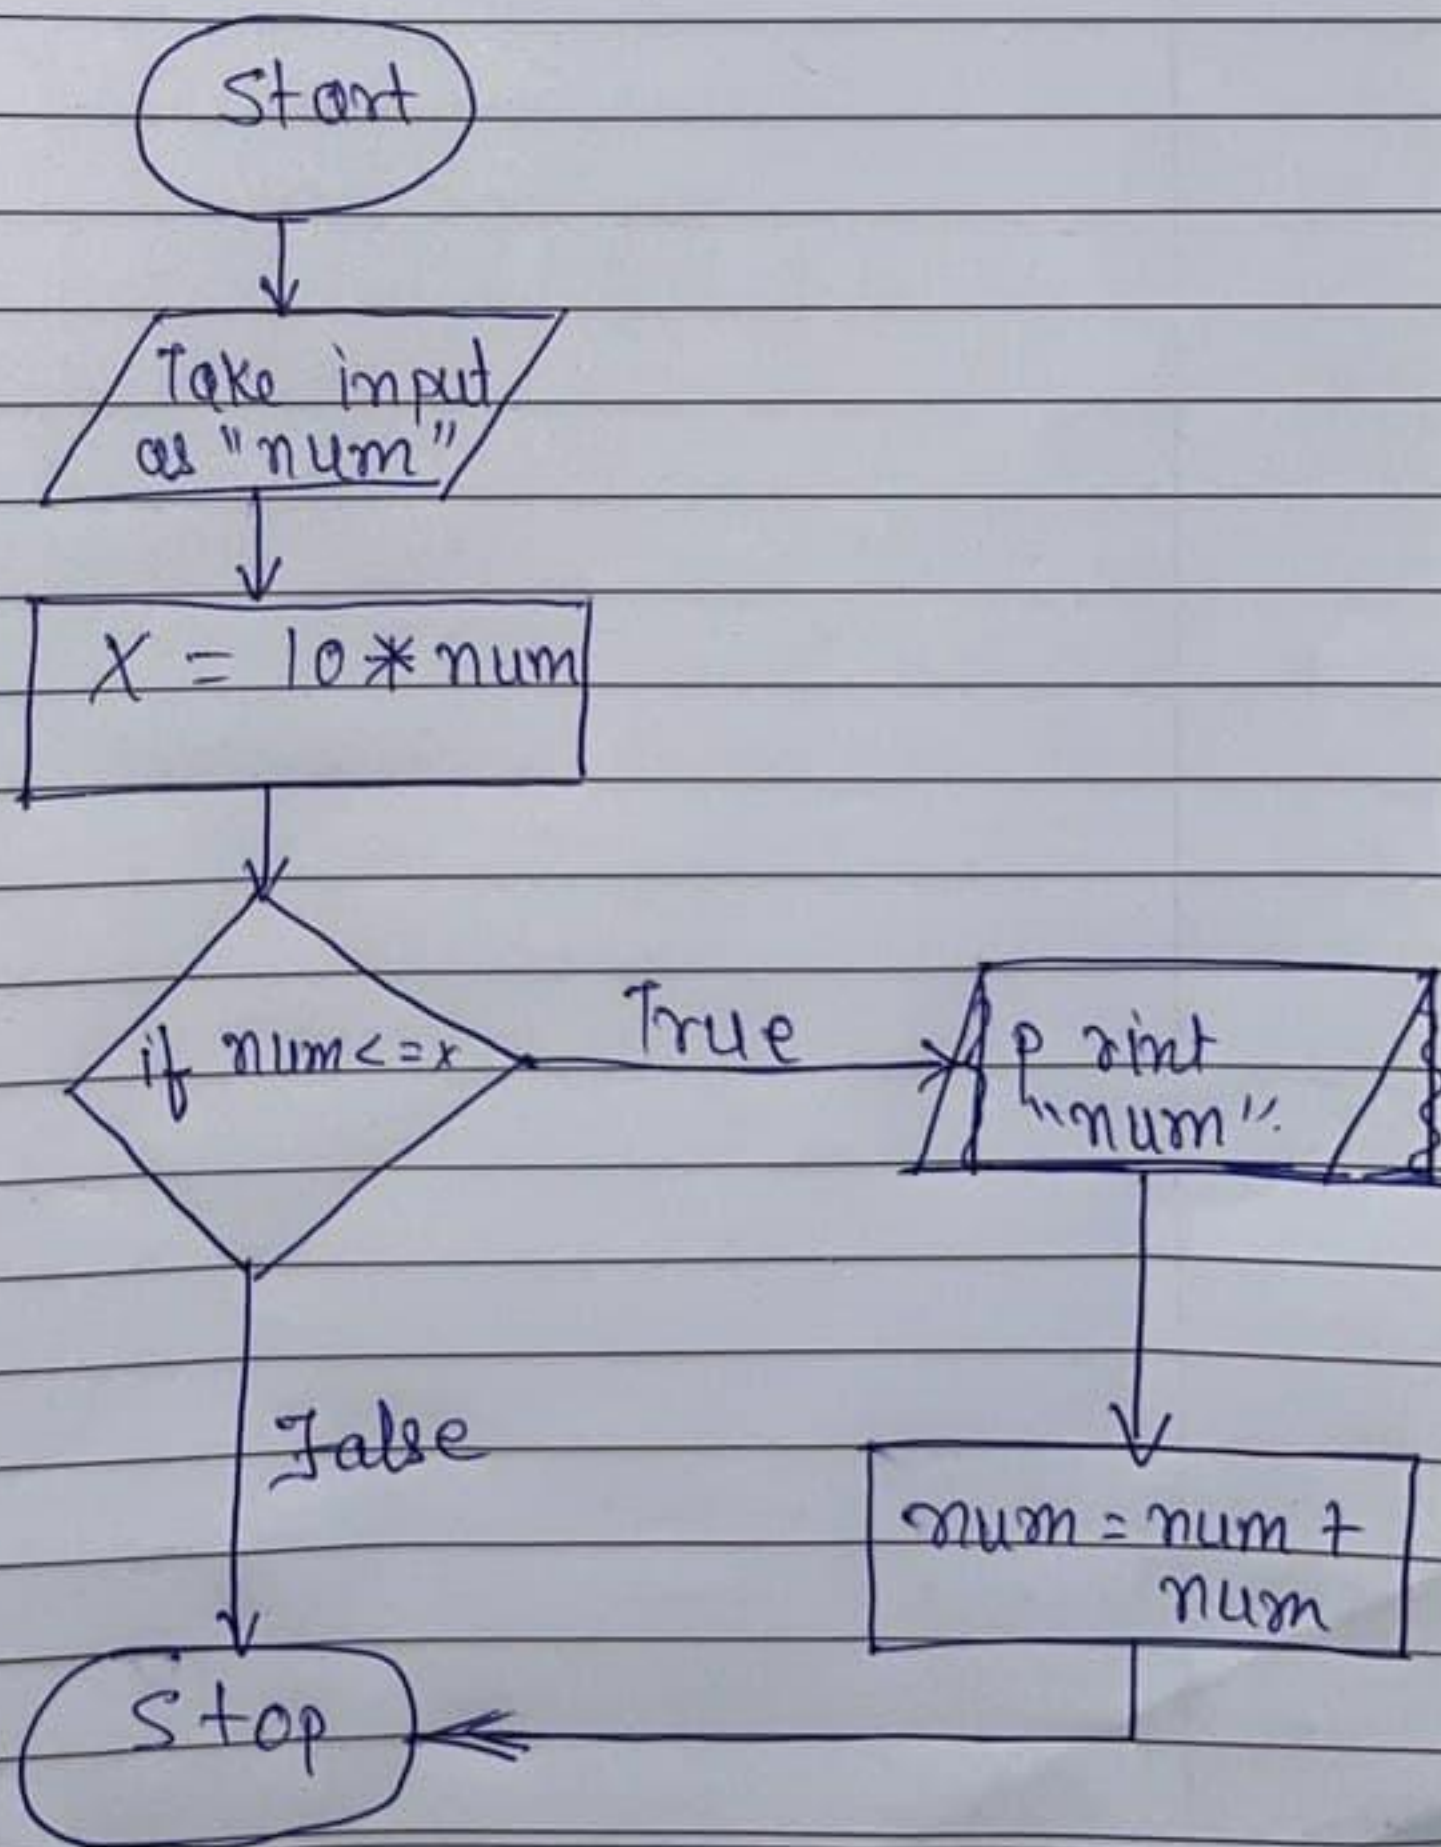 Start
Take input
as "num"
X = 10 * num
if num <= x
True
Print
"num".
False
num = num +
num
Stop